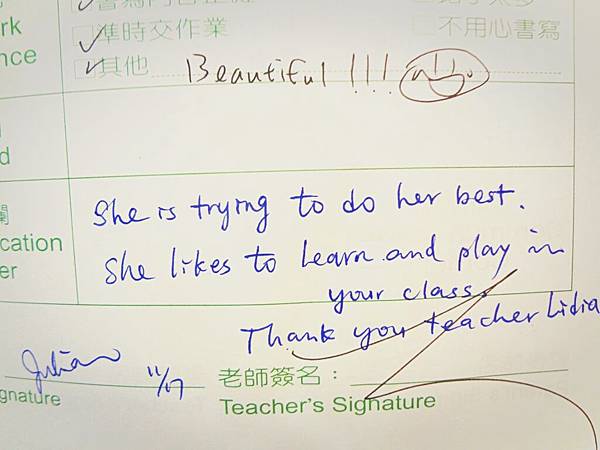 準時交作業
不用心書寫
其他 Beautiful!!!
She is trying to do her best.
She likes to learn and play in
your class.
Thank you teacher Lidia
Julian 11/17
老師簽名：
Teacher's Signature